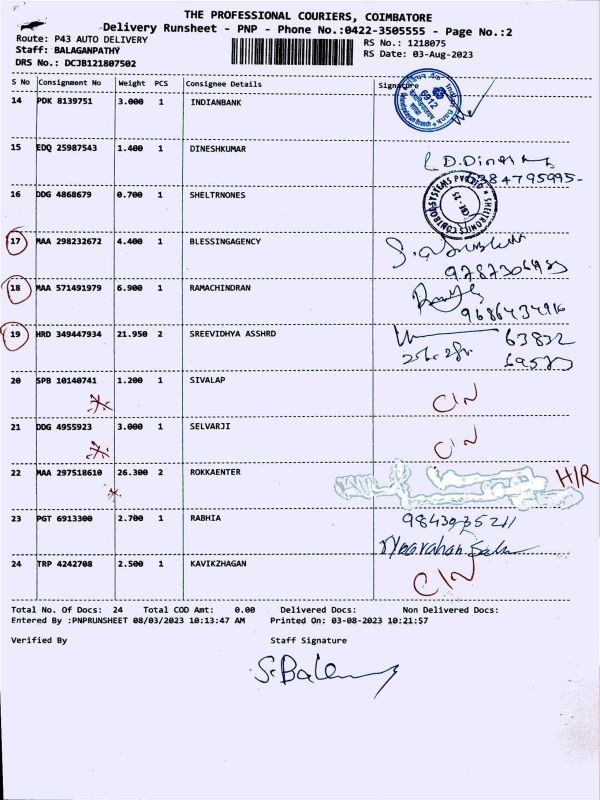 THE PROFESSIONAL COURIERS, COIMBATORE
Delivery Runsheet - PNP - Phone No.:0422-3505555 - Page No.:2
Route: P43 AUTO DELIVERY
Staff: BALAGANPATHY
DRS No.: DCJB121807502
RS No.: 1218075
RS Date: 03-Aug-2023
S No Consignment No Weight PCS Consignee Details Signature
14 PDK 8139751 3.000 1 INDIANBANK
6912
15 EDQ 25987543 1.400 1 DINESHKUMAR
16 DDG 4868679 0.700 1 SHELTRNONES
SHELTRONICS CONTROL SYSTEMS PVT LTD
17 MAA 298232672 4.400 1 BLESSINGAGENCY
18 MAA 571491979 6.900 1 RAMACHINDRAN
9686434916
19 HRD 349447934 21.950 2 SREEVIDHYA ASSHRD
20 SPB 10140741 1.200 1 SIVALAP CIN
21 DDG 4955923 3.000 1 SELVARJI CIN
22 MAA 297518610 26.300 2 ROKKAENTER H/R
23 PGT 6913300 2.700 1 RABHIA
24 TRP 4242708 2.500 1 KAVIKZHAGAN CIN
Total No. Of Docs: 24 Total COD Amt: 0.00 Delivered Docs: Non Delivered Docs:
Entered By :PNPRUNSHEET 08/03/2023 10:13:47 AM Printed On: 03-08-2023 10:21:57
Verified By Staff Signature